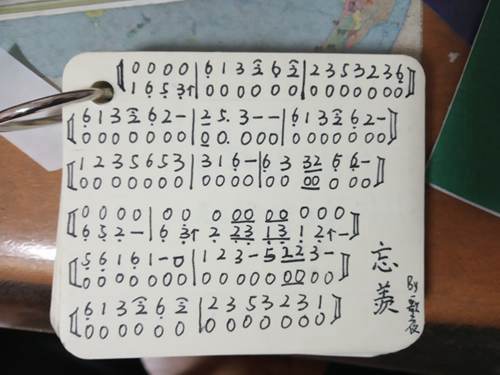 0 0 0 0 | 6̣ 1 3 2̂ 6̣ 2̂ | 2 3 5 3 2 3 6̣
1 6̣ 5̣ 3̣↑ | 0 0 0 0 0 0 | 0 0 0 0 0 0 0
6̣ 1 3 2̂ 6̣ 2 – | 2 5. 3 – – | 6̣ 1 3 2̂ 6̣ 2 –
0 0 0 0 0 0 0 | 0 0. 0 0 0 | 0 0 0 0 0 0 0
1 2 3 5 6 5 3 | 3 1 6̣ – | 6̣ 3 32 5̣ 6̣ –
0 0 0 0 0 0 0 | 0 0 0 0 | 0 0 00 0 0 0
0 0 0 0 | 0 0 0 00 00 0 0 0
6̣ 5̣ 2̣ – | 6̣ 3̣↑ 2̣ 2̣3̣ 1̣3̣ 1̣ 2̣↑ –
5̣ 6̣ 1 6̣ 1 – 0 | 1 2 3 – 5 22 3 –
0 0 0 0 0 0 0 | 0 0 0 0 0 00 0 0
6̣ 1 3 2̂ 6̣ 2̂ | 2 3 5 3 2 3 1
0 0 0 0 0 0 | 0 0 0 0 0 0 0
忘羡
By